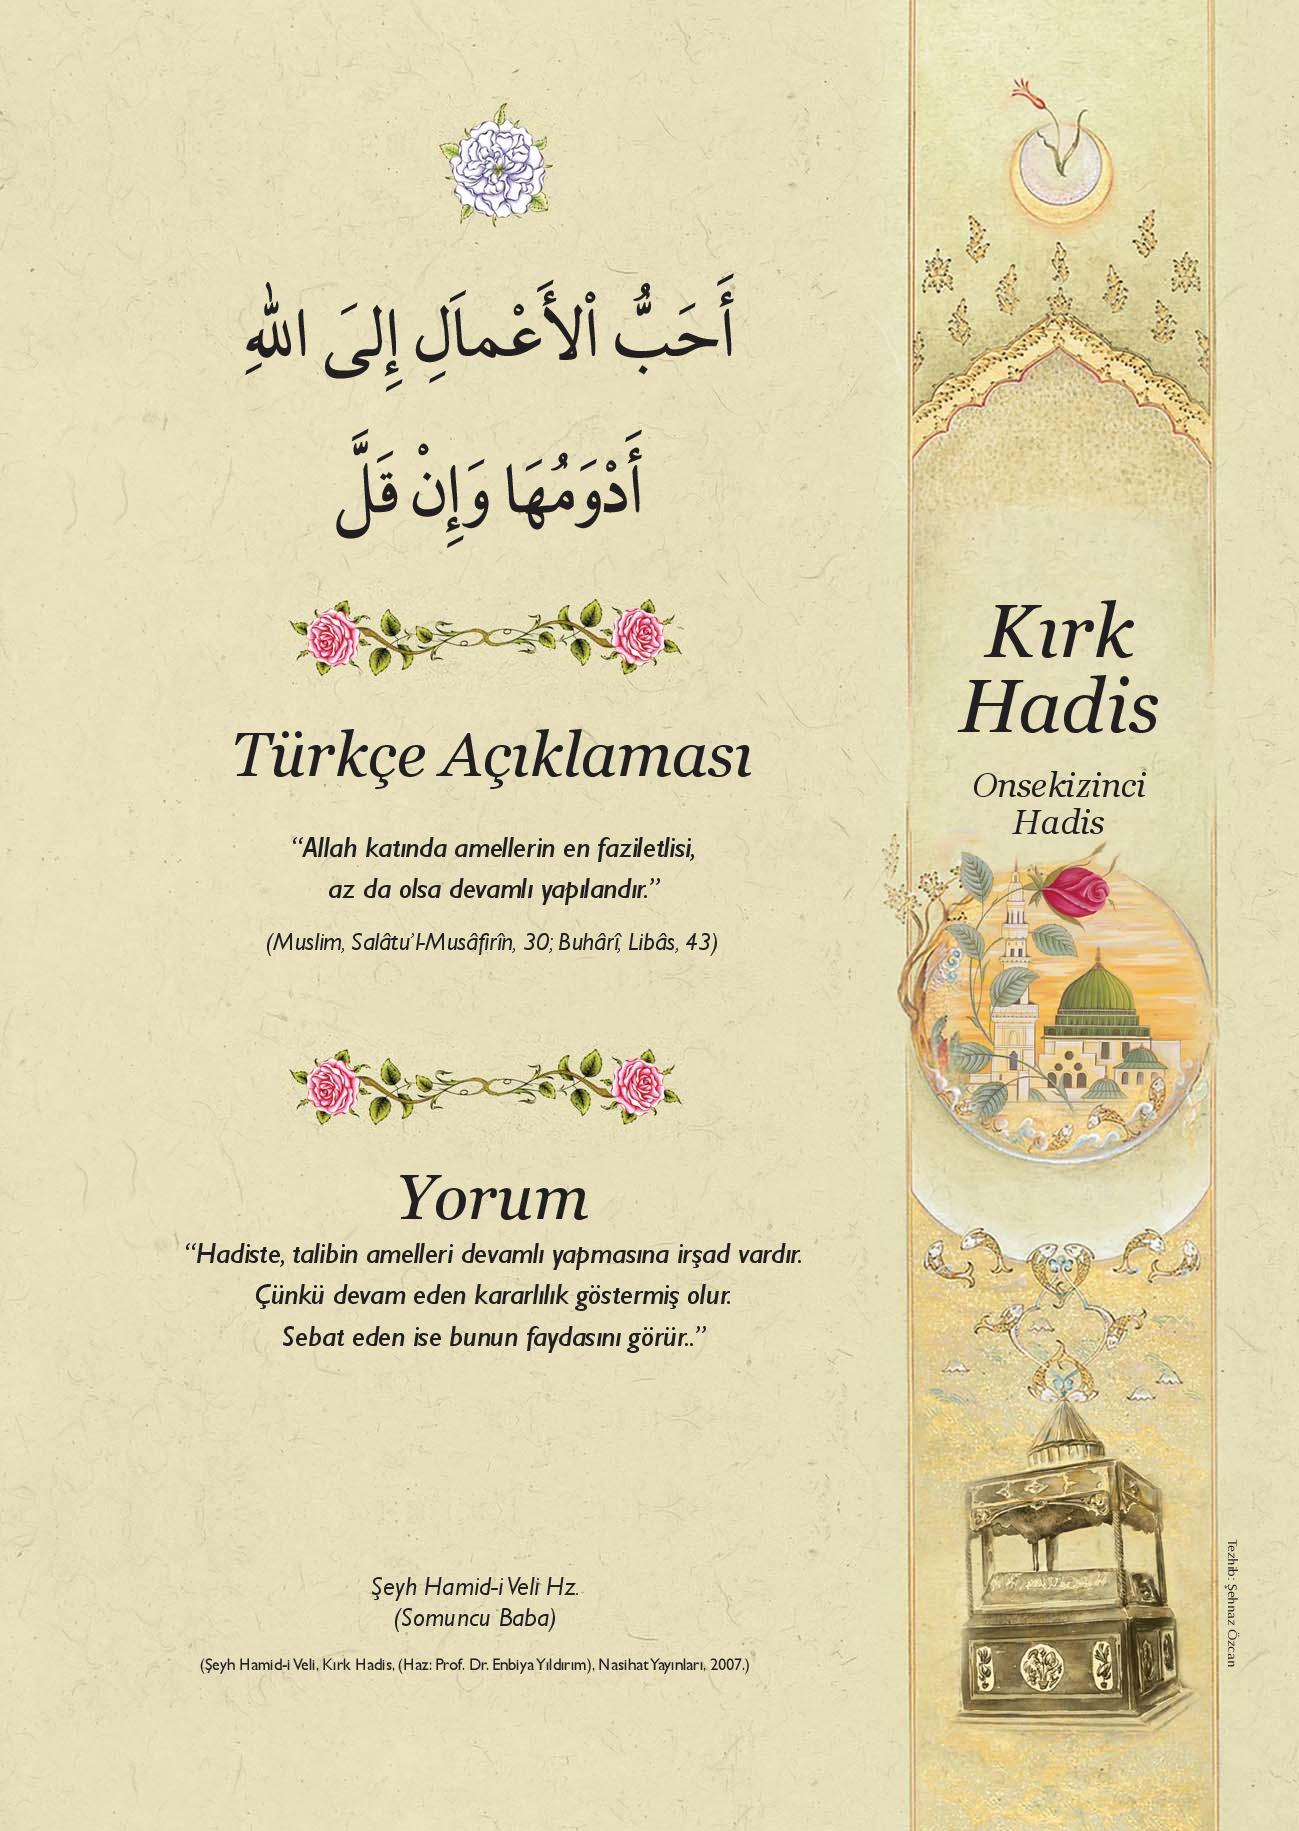 أَحَبُّ اْلأَعْماَلِ إِلىَ اللهِ
أَدْوَمُهَا وَإِنْ قَلَّ
Türkçe Açıklaması
“Allah katında amellerin en faziletlisi,
az da olsa devamlı yapılandır.”
(Muslim, Salâtu’l-Musâfirîn, 30; Buhârî, Libâs, 43)
Yorum
“Hadiste, talibin amelleri devamlı yapmasına irşad vardır.
Çünkü devam eden kararlılık göstermiş olur.
Sebat eden ise bunun faydasını görür..”
Şeyh Hamid-i Veli Hz.
(Somuncu Baba)
(Şeyh Hamid-i Veli, Kırk Hadis, (Haz: Prof. Dr. Enbiya Yıldırım), Nasihat Yayınları, 2007.)
Kırk
Hadis
Onsekizinci
Hadis
Tezhib: Şehnaz Özcan